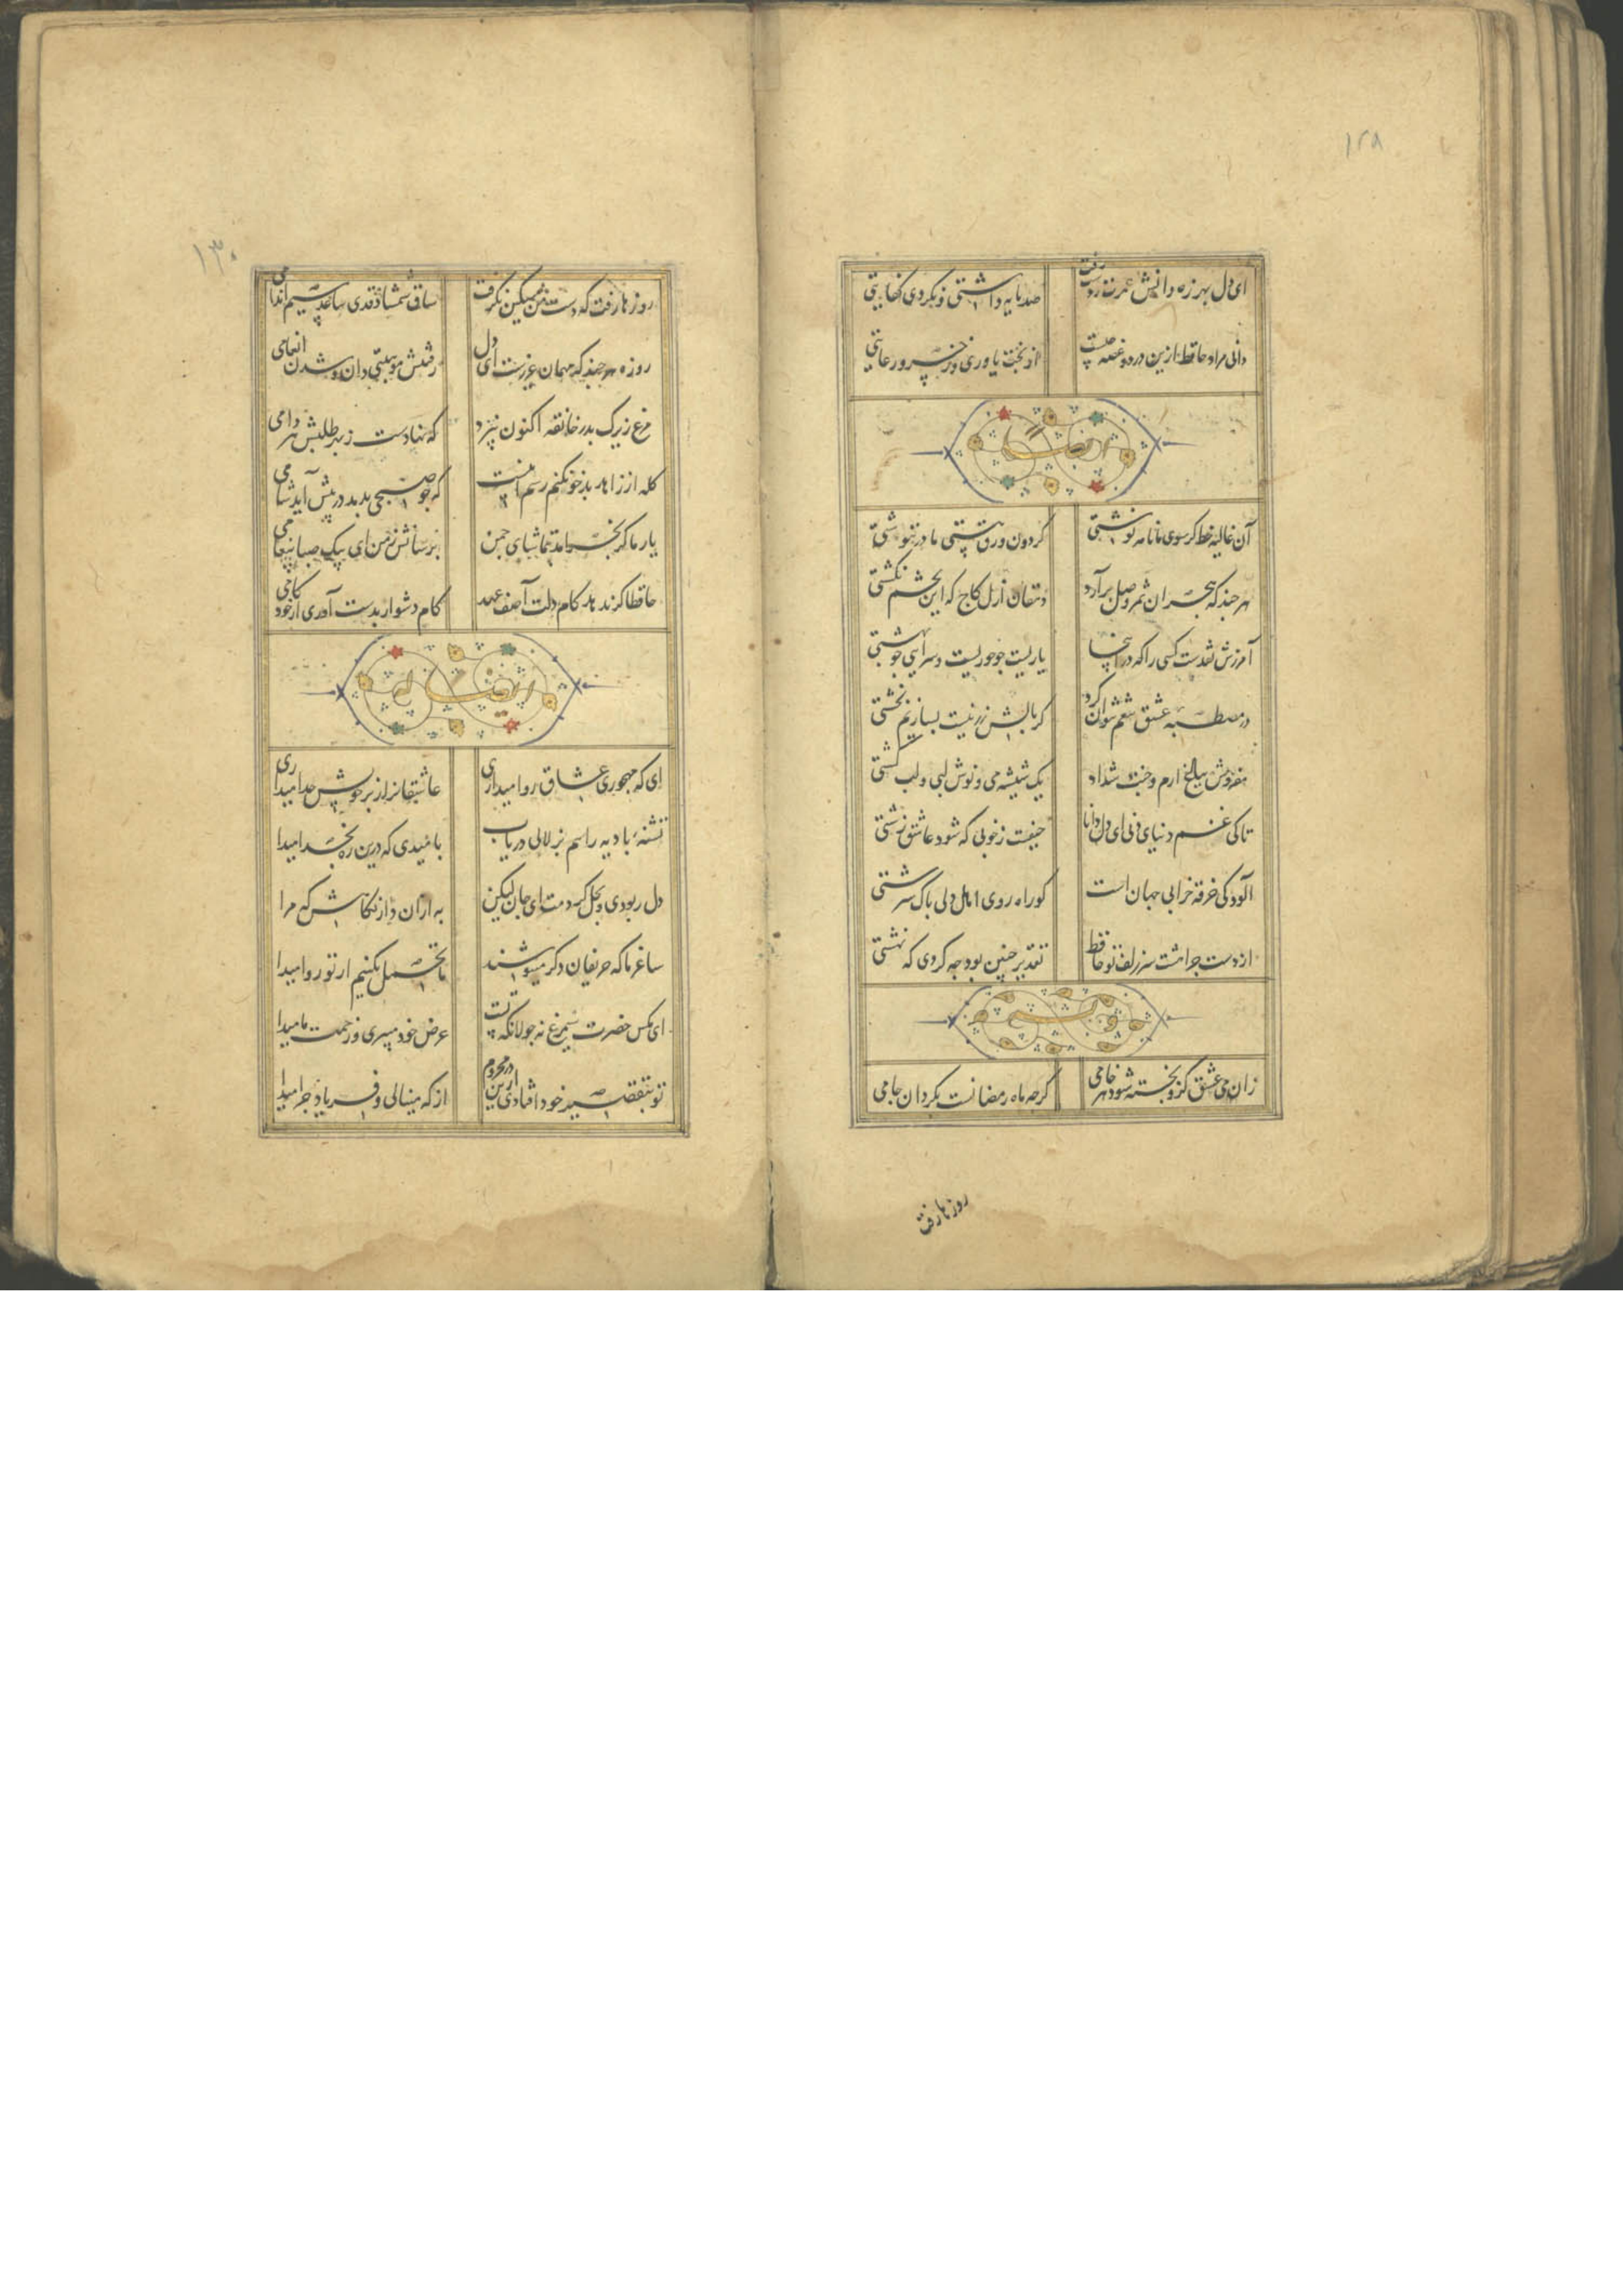 ۱۲۸
ای دل بهرزه دانش عمرت ز دست رفت صد مایه داشتی و نکردی کفایتی
دانی مراد حافظ ازین درد و غصه چیست از بخت یاوری و ز خسرو رعایتی
ایضا
آن غالیه خط گر سوی ما نامه نوشتی گردون ورق هستی ما در ننوشتی
هر چند که هجران ثمر وصل برآرد دهقان ازل کاج که این تخم نکشتی
آمرزش نقدست کسی را که در اینجا یاریست چو حوریست و سرایی چو بهشتی
در مصطبه عشق تنعم نتوان کرد گر بالش زر نیست بسازیم بخشتی
مفروش بباغ ارم و جنت شداد یک شیشه می و نوش لبی و لب کشتی
تا کی غم دنیای دنی ای دل دانا حیفست ز خوبی که شود عاشق زشتی
آلودگی خرقه خرابی جهان است کو راه روی اهل دلی پاک سرشتی
از دست چرا هشت سر زلف تو حافظ تقدیر چنین بود چه کردی که نهشتی
زان می عشق کزو پخته شود هر خامی گرچه ماه رمضانست بگردان جامی
روزها رفت
۱۳۰
روزها رفت که دست من مسکین نگرفت ساق شمشاد قدی ساعد سیم اندامی
روزه هر چند که مهمان عزیزست ای دل رفتنش موهبتی دان و شدن انعامی
مرغ زیرک بدر خانقه اکنون نپرد که نهادست ز بهر طلبش هر دامی
گله از زاهد بدخو نکنم رسم اینست که چو صبحی بدمد در پیش آید شامی
یار ما گر بخرامد بتماشای چمن برسانش ز من ای پیک صبا پیغامی
حافظا گر ندهد کام دلت آصف عهد کام دشوار بدست آوری از خود کامی
ایضا له
ای که مهجوری عشاق روا میداری عاشقانرا ز بر خویش جدا میداری
تشنه بادیه را هم بزلالی دریاب بامیدی که درین ره بخدا میدا
دل ربودی و بحل کردمت ای جان لیکن به ازان دار نگاهش که مرا
ساغر ما که حریفان دگر مینوشند ما تحمل نکنیم ار تو روا میدا
ای مگس حضرت سیمرغ نه جولانگه تست عرض خود میبری و زحمت ما میدا
تو بتقصیر خود افتادی ازین در محروم از که مینالی و فریاد چرا میدا